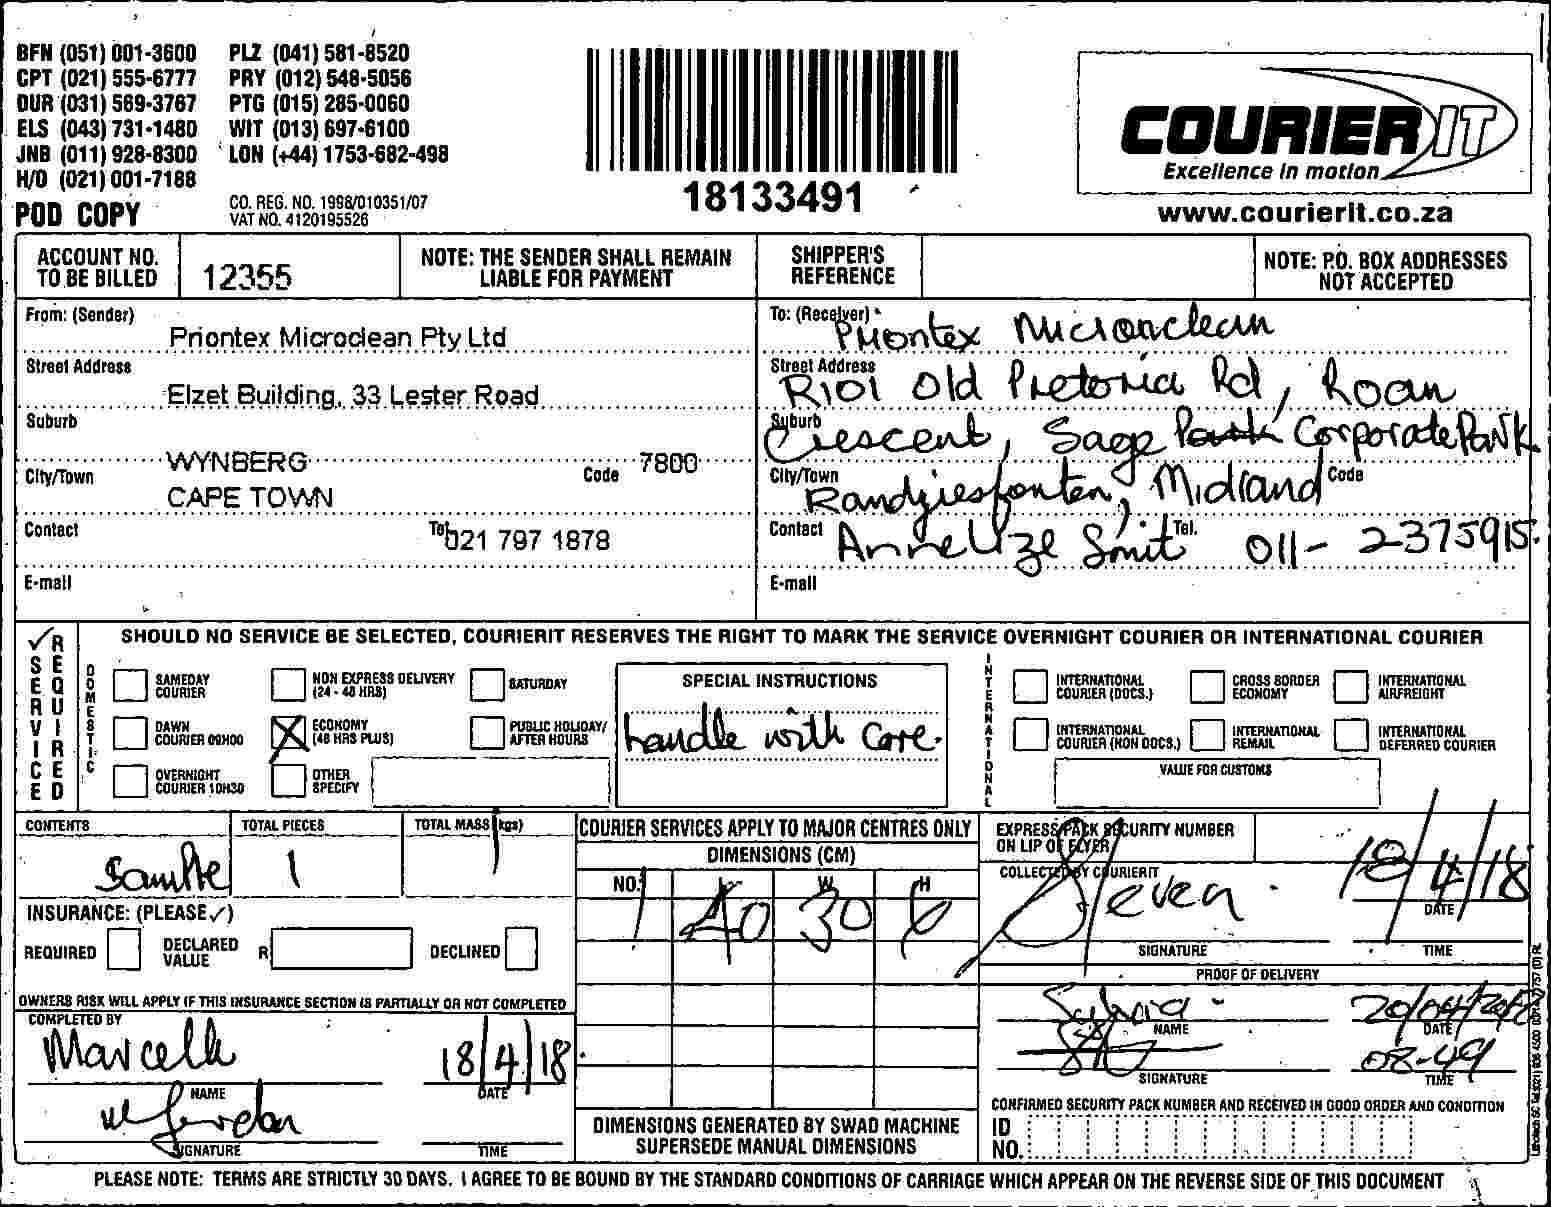 BFN (051) 001-3600 PLZ (041) 581-8520
CPT (021) 555-6777 PRY (012) 548-5056
DUR (031) 569-3767 PTG (015) 285-0060
ELS (043) 731-1480 WIT (013) 697-6100
JNB (011) 928-8300 LON (+44) 1753-682-498
H/O (021) 001-7188
POD COPY
CO. REG. NO. 1998/010351/07
VAT NO. 4120195526
18133491
COURIER IT
Excellence in motion
www.courierit.co.za
ACCOUNT NO. TO BE BILLED 12355
NOTE: THE SENDER SHALL REMAIN LIABLE FOR PAYMENT
SHIPPER'S REFERENCE
NOTE: P.O. BOX ADDRESSES NOT ACCEPTED
From: (Sender) Priontex Microclean Pty Ltd
Street Address Elzet Building, 33 Lester Road
Suburb WYNBERG
City/Town CAPE TOWN Code 7800
Contact Tel. 021 797 1878
E-mail
To: (Receiver) Priontex Microaclean
Street Address R101 Old Pretoria Rd, Roan
Suburb Crescent, Sage Park Corporate Park
City/Town Randjiesfontein, Midrand Code
Contact Annelize Smit Tel. 011- 2375915
E-mail
SERVICE REQUIRED
SHOULD NO SERVICE BE SELECTED, COURIERIT RESERVES THE RIGHT TO MARK THE SERVICE OVERNIGHT COURIER OR INTERNATIONAL COURIER
DOMESTIC
SAMEDAY COURIER
NON EXPRESS DELIVERY (24 - 48 HRS)
SATURDAY
DAWN COURIER 09H00
ECONOMY (48 HRS PLUS)
PUBLIC HOLIDAY/ AFTER HOURS
OVERNIGHT COURIER 10H30
OTHER SPECIFY
SPECIAL INSTRUCTIONS
handle with care.
INTERNATIONAL
INTERNATIONAL COURIER (DOCS.)
CROSS BORDER ECONOMY
INTERNATIONAL AIRFREIGHT
INTERNATIONAL COURIER (NON DOCS.)
INTERNATIONAL REMAIL
INTERNATIONAL DEFERRED COURIER
VALUE FOR CUSTOMS
CONTENTS Sample
TOTAL PIECES 1
TOTAL MASS (kgs) 1
INSURANCE: (PLEASE ✓)
REQUIRED DECLARED VALUE R DECLINED
OWNERS RISK WILL APPLY IF THIS INSURANCE SECTION IS PARTIALLY OR NOT COMPLETED
COMPLETED BY
Marcelle 18/4/18
NAME DATE
SIGNATURE TIME
COURIER SERVICES APPLY TO MAJOR CENTRES ONLY
DIMENSIONS (CM)
NO. L W H
1 40 30 6
DIMENSIONS GENERATED BY SWAD MACHINE SUPERSEDE MANUAL DIMENSIONS
EXPRESS PACK SECURITY NUMBER ON LIP OF FLYER
COLLECTED BY COURIERIT
Steven 18/4/18
DATE
SIGNATURE TIME
PROOF OF DELIVERY
20/04/2018
NAME DATE
08-49
SIGNATURE TIME
CONFIRMED SECURITY PACK NUMBER AND RECEIVED IN GOOD ORDER AND CONDITION
ID NO.
PLEASE NOTE: TERMS ARE STRICTLY 30 DAYS. I AGREE TO BE BOUND BY THE STANDARD CONDITIONS OF CARRIAGE WHICH APPEAR ON THE REVERSE SIDE OF THIS DOCUMENT